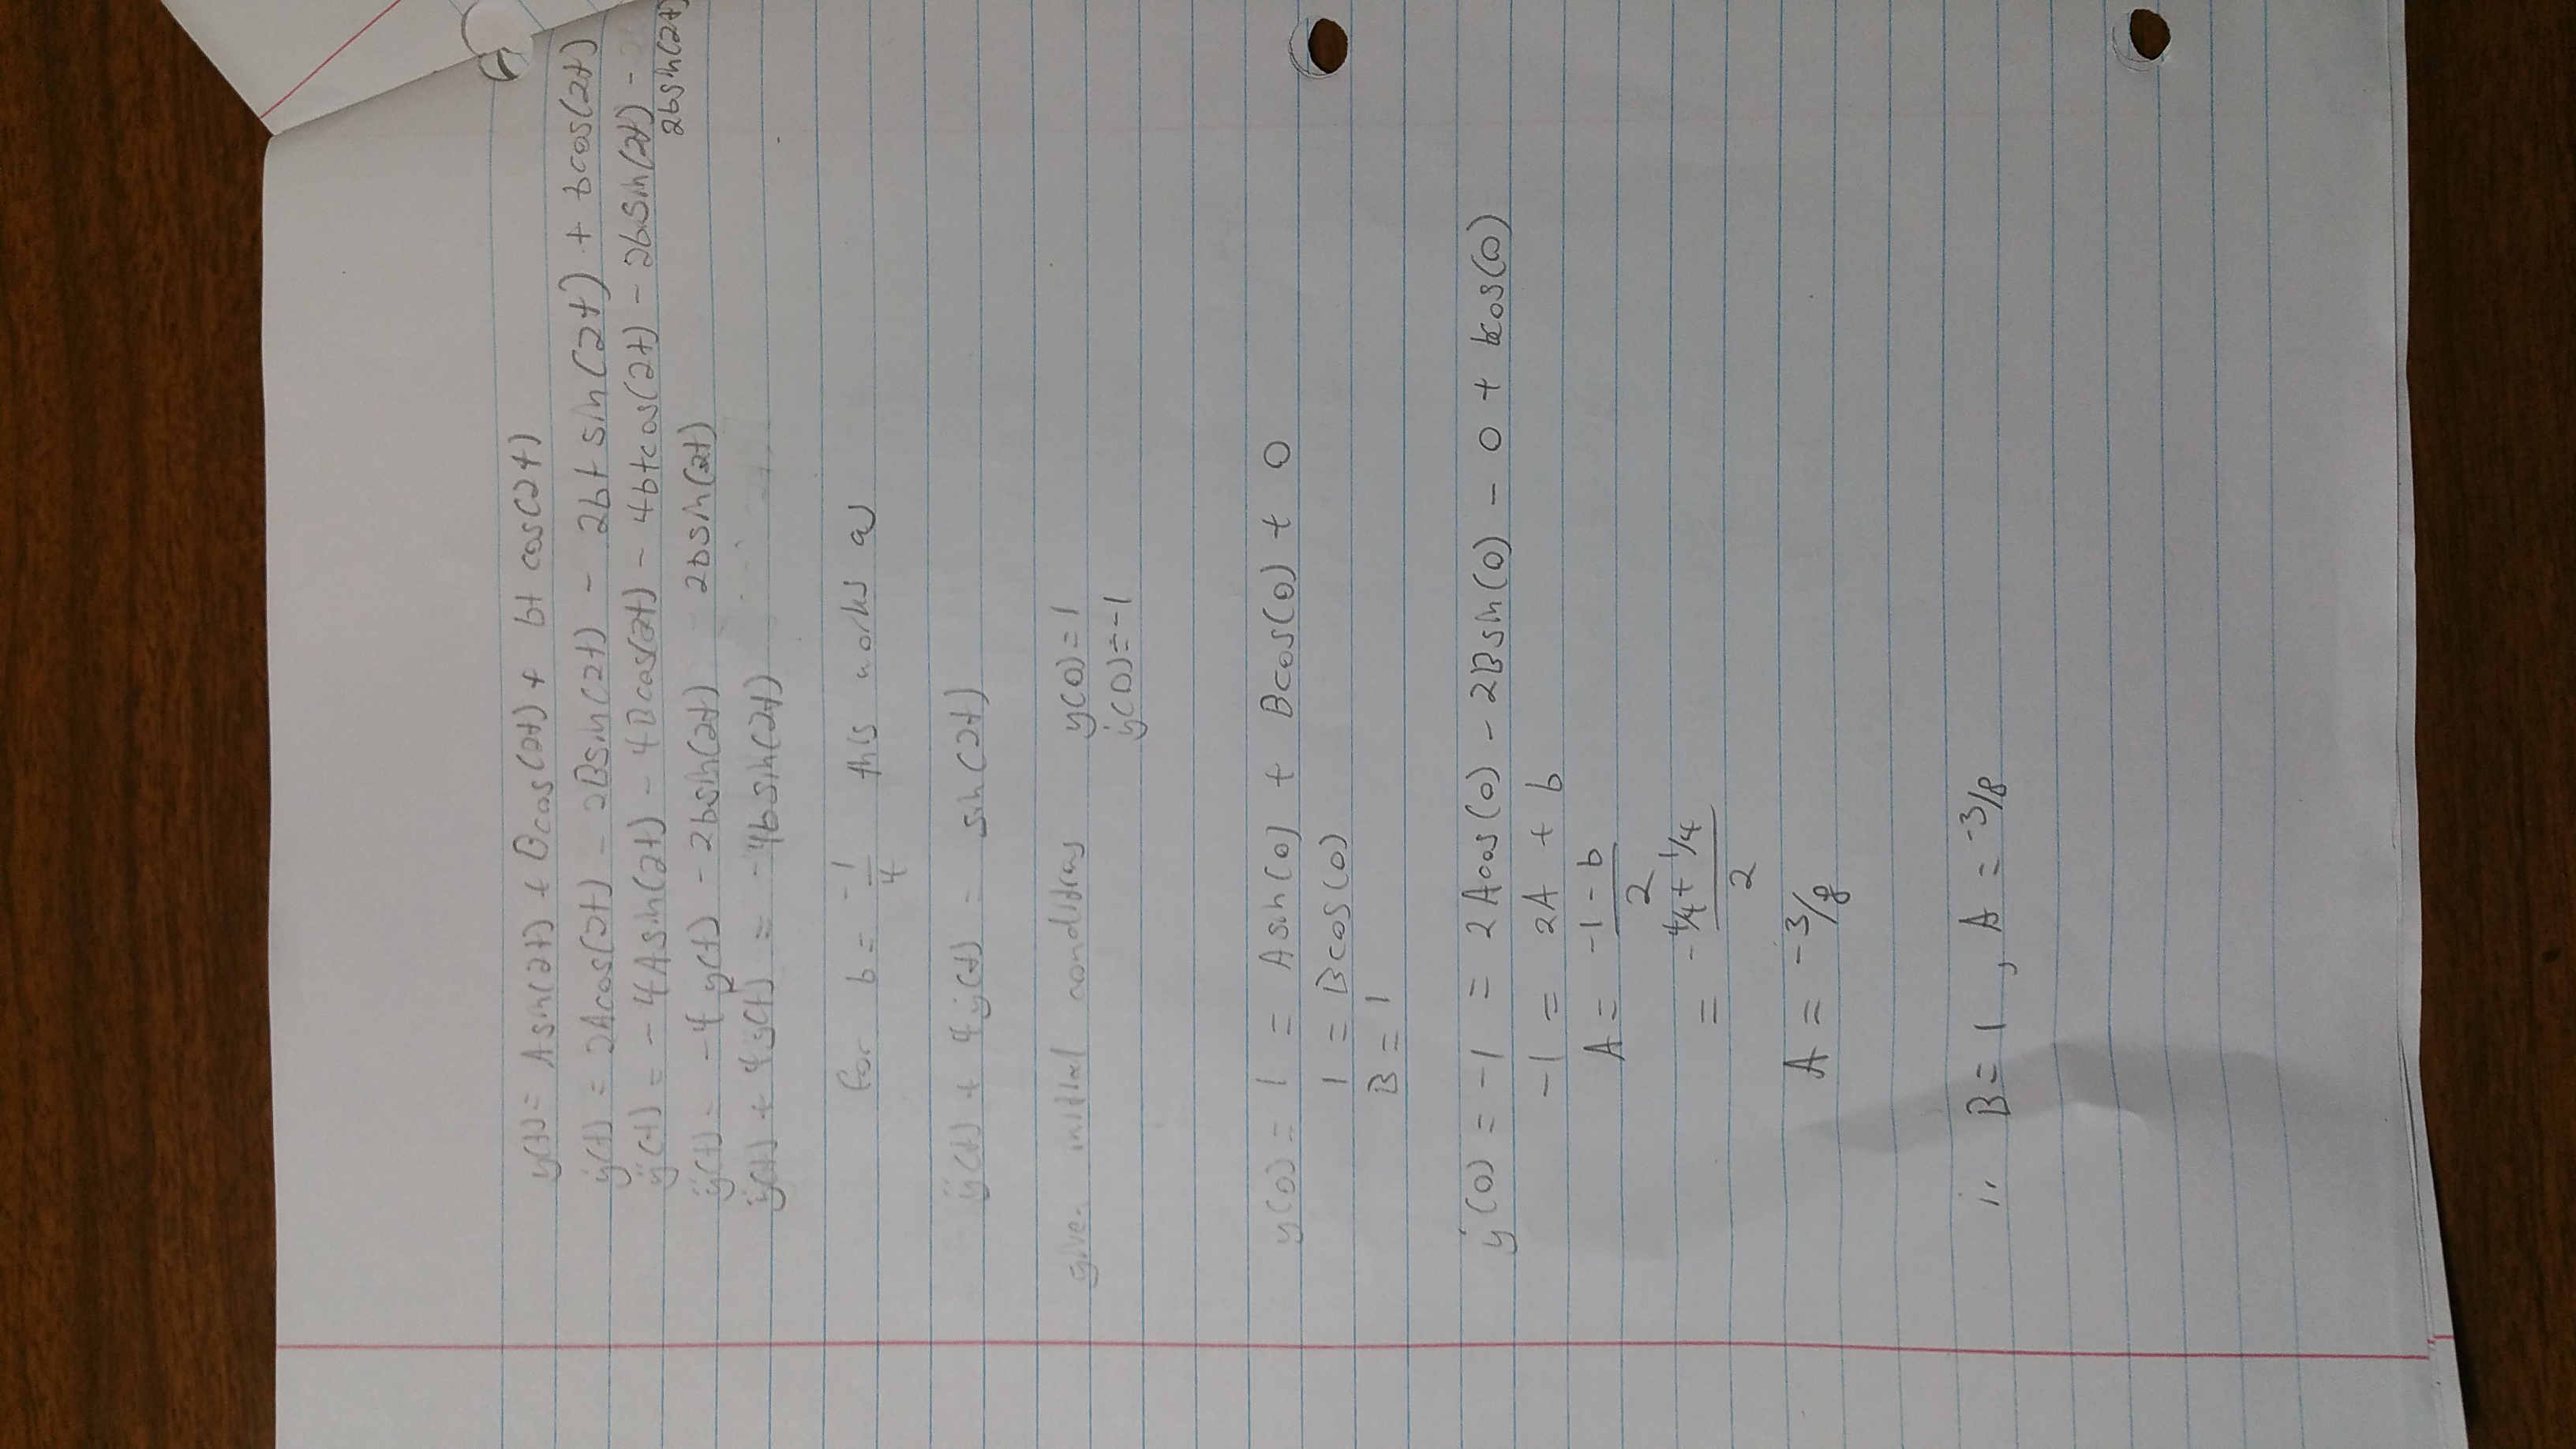 y(t) = A sin(2t) + B cos(2t) + bt cos(2t)
ẏ(t) = 2A cos(2t) - 2B sin(2t) - 2bt sin(2t) + b cos(2t)
ÿ(t) = - 4A sin(2t) - 4B cos(2t) - 4bt cos(2t) - 2b sin(2t) -
2b sin(2t)
ÿ(t) = - 4 y(t) - 2b sin(2t) - 2b sin(2t)
ÿ(t) + 4y(t) = - 4b sin(2t)
for b = -1/4 this works as
ÿ(t) + 4y(t) = sin(2t)
given initial conditions y(0) = 1
ẏ(0) = -1
y(0) = 1 = A sin(0) + B cos(0) + 0
1 = B cos(0)
B = 1
ẏ(0) = -1 = 2A cos(0) - 2B sin(0) - 0 + b cos(0)
-1 = 2A + b
A = (-1 - b)/2
= (-4/4 + 1/4)/2
A = -3/8
∴ B = 1, A = -3/8